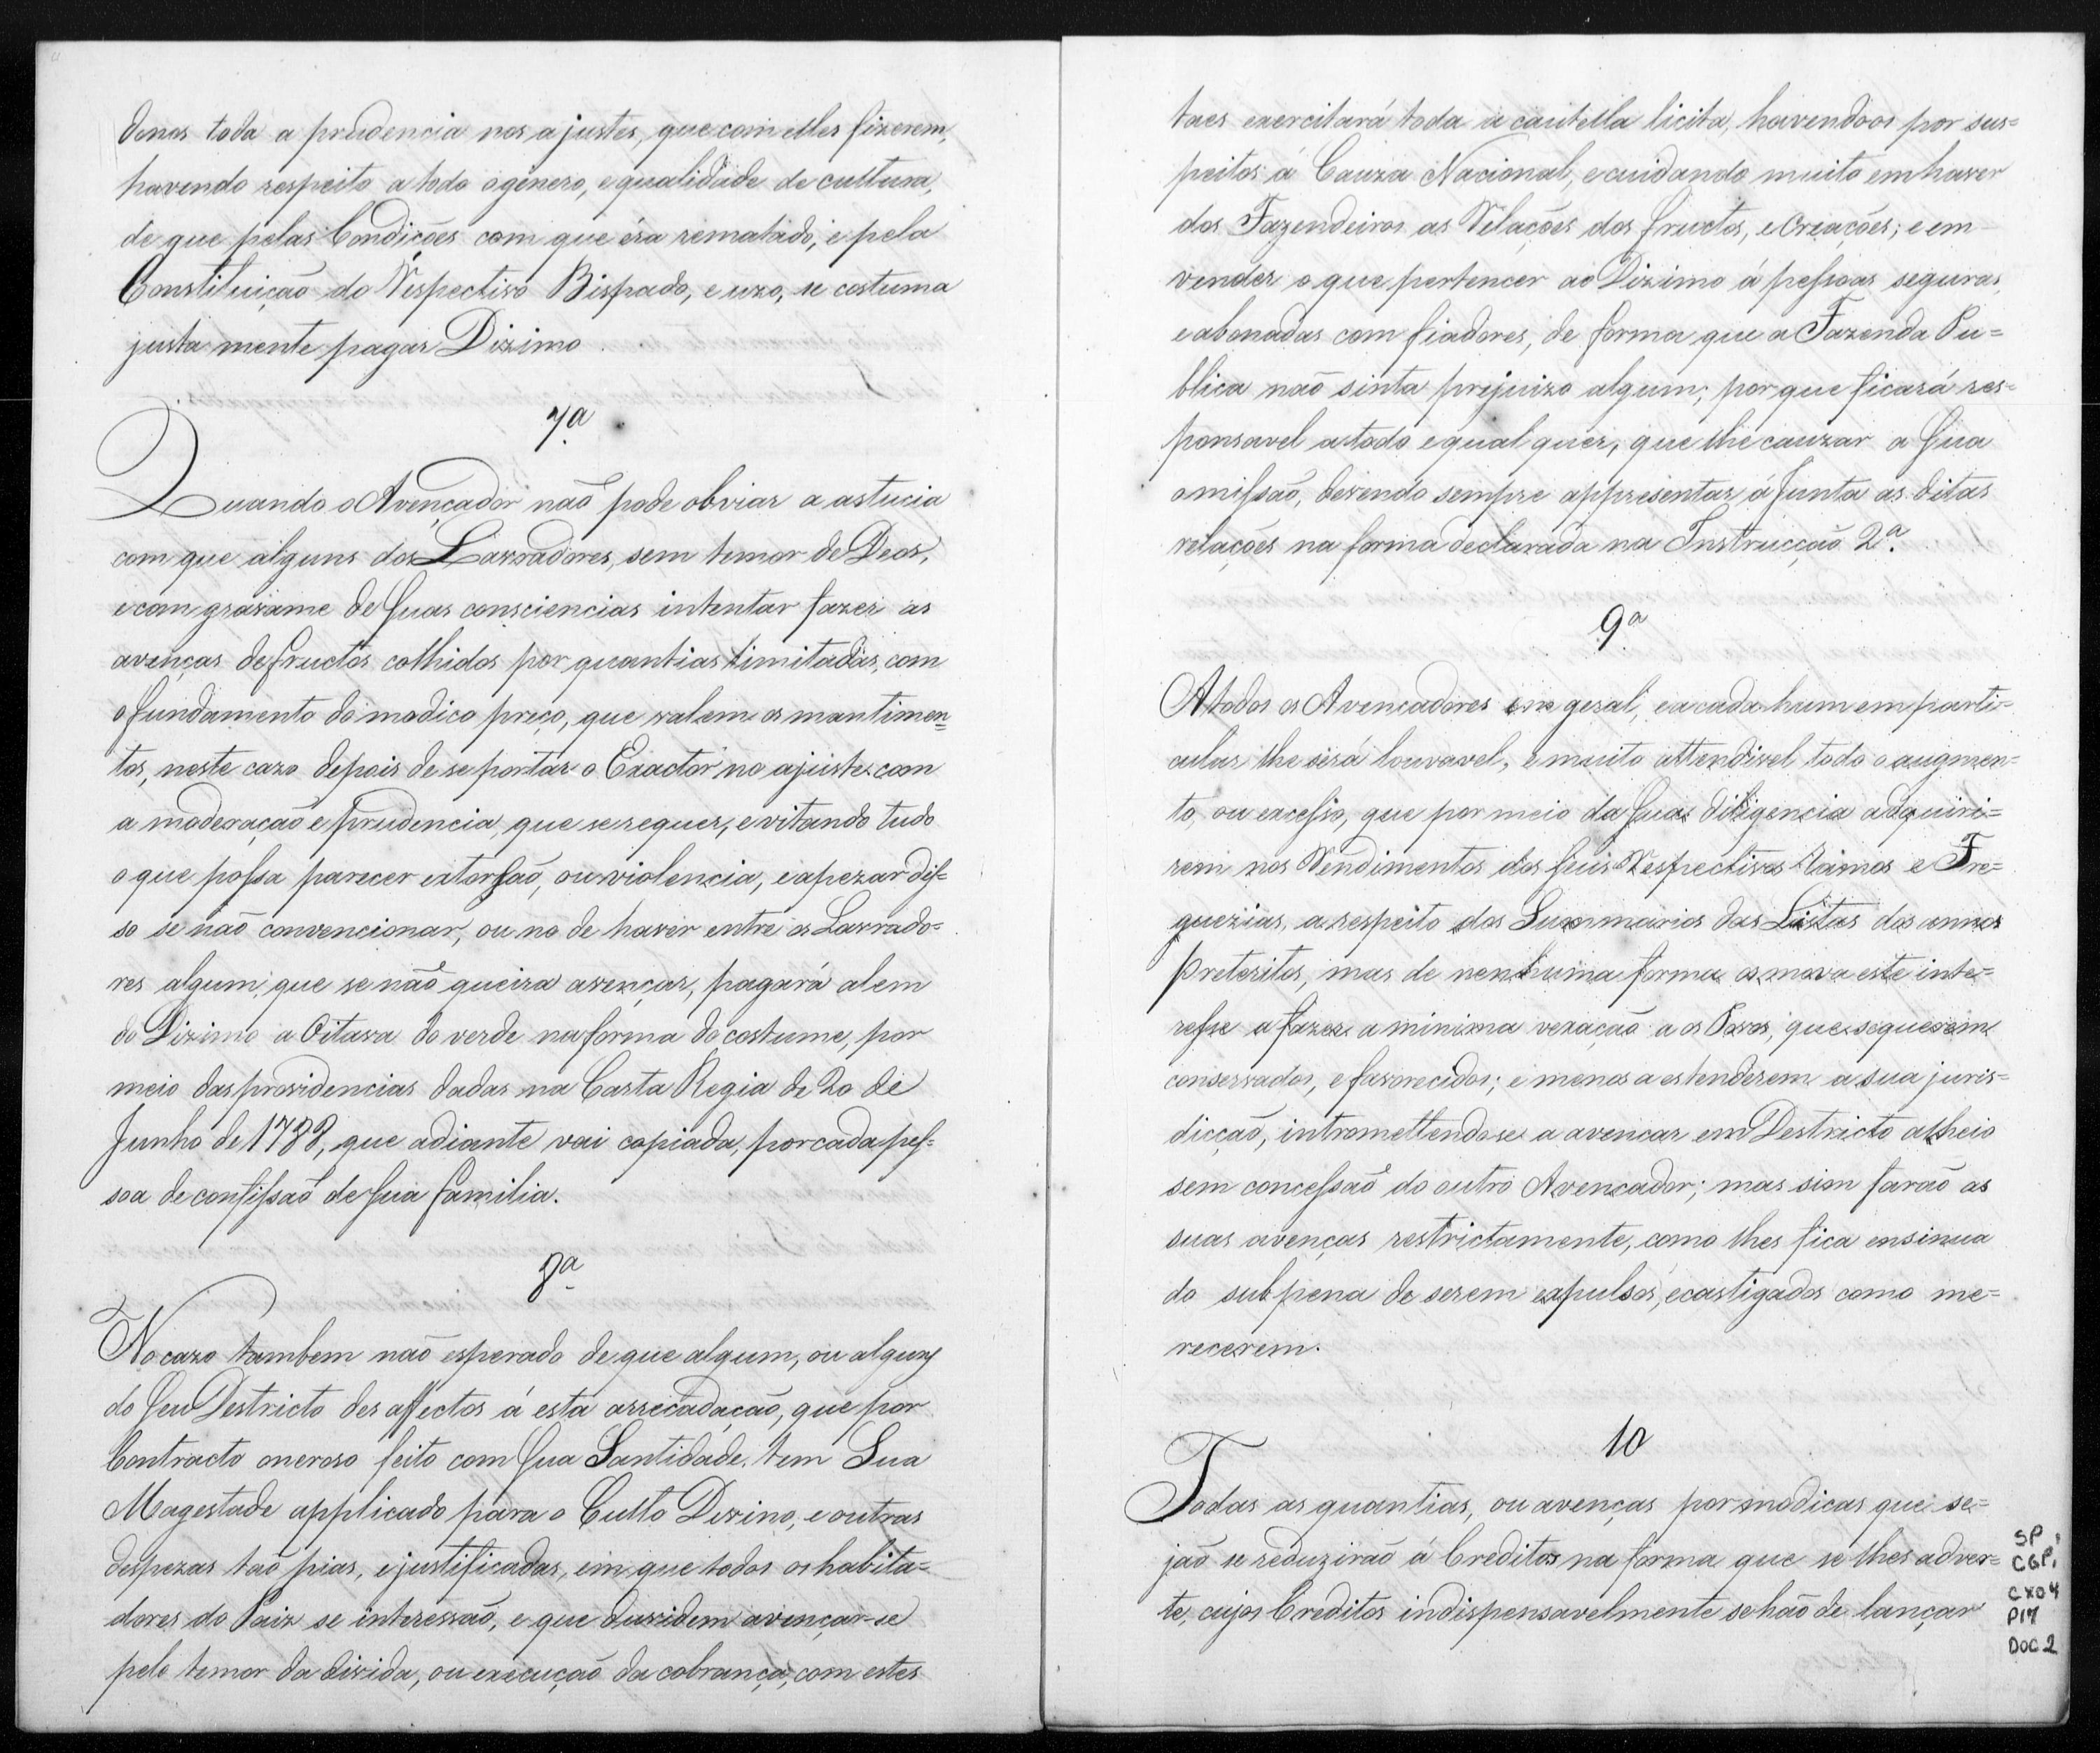 donos toda a prudencia nos ajustes, que com elles fizerem,
havendo respeito a todo o genero, e qualidade de cultura,
de que pelas Condições com que éra rematado, e pela
Constituição do Respectivo Bispado, e uzo, se costuma
justamente pagar Dizimo
7ª
Quando o Avençador não pode obviar a astucia
com que alguns dos Lavradores, sem temor de Deos,
e com gravame de suas consciencias intentar fazer as
avenças de fructos colhidos por quantias limitadas, com
o fundamento do modico preço, que valem os mantimen=
tos, neste cazo depois de se portar o Exactor no ajuste com
a moderação e prudencia, que se requer, evitando tudo
o que possa parecer extorsão, ou violencia, e apezar dis=
so se não convencionar, ou no de haver entre os Lavrado=
res algum, que se não queira avençar, pagará alem
do Dizimo a Oitava do verde na forma do costume, por
meio das providencias dadas na Carta Regia de 20 de
Junho de 1788, que adiante vai copiada, por cada pes=
soa de confissão de sua familia.
8ª
No cazo tambem não esperado de que algum, ou alguns
do seu Destricto desaffectos á esta arrecadação, que por
Contracto oneroso feito com Sua Santidade, tem Sua
Magestade applicado para o Culto Devino, e outras
despezas tão pias, e justificadas, em que todos os habita=
dores do Paiz se interessão, e que duvidem avençar-se
pelo temor da divida, ou execução da cobrança, com estes
taes exercitará toda a cautella licita, havendoos por sus=
peitos á Cauza Nacional, e cuidando muito em haver
dos Fazendeiros as Relações dos fructos, e Creações; e em
vender o que pertencer ao Dizimo á pessoas seguras,
e abonadas com fiadores, de forma que a Fazenda Pu=
blica não sinta prejuizo algum; porque ficará res=
ponsavel a todo e qual quer, que lhe cauzar a sua
omissão, devendo sempre appresentar á Junta as ditas
relações na forma declarada na Instrucção 2ª.
9ª
A todos os Avencadores em geral, e a cada hum em parti=
cular lhe será louvavel, e muito attendivel todo o augmen=
to, ou excesso, que por meio da sua diligencia adquiri=
rem nos Rendimentos dos seus Respectivos Ramos e Fre=
guezias, a respeito dos Summarios das Listas dos annos
preteritos, mas de nenhuma forma os mova este inte=
resse a fazer a minima vexação a os Povos, que se querem
conservados, e favorecidos; e menos a estenderem a sua juris=
dicção, intromettendose a avencar em Destricto alheio
sem concessão do outro Avencador; mas sim farão as
suas avenças restrictamente, como lhes fica ensinua
do sub pena de serem expulsos, e castigados como me=
recerem.
10
Todas as quantias, ou avenças por modicas que se=
jão se reduzirão á Creditos na forma que se lhes adver=
te, cujos Creditos indispensavelmente se hão de lançar
SP,
CGP,
CX04
P17
DOC2